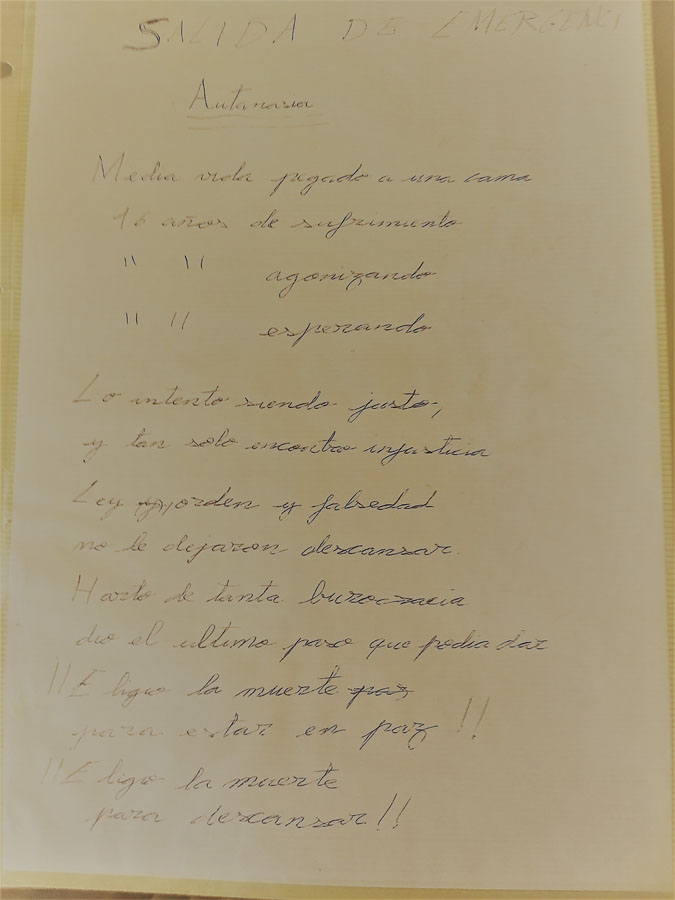 SALIDA DE EMERGENCI
Autanasia
Media vida pegado a una cama
16 años de sufrimiento
" " agonizando
" " esperando
Lo intento siendo justo,
y tan solo encontro injusticia
Ley y, orden y falsedad
no le dejaron descansar.
Harto de tanta burocracia
dio el ultimo paso que podia dar
!!Eligio la muerte paz
para estar en paz !!
!!Eligio la muerte
para descansar!!